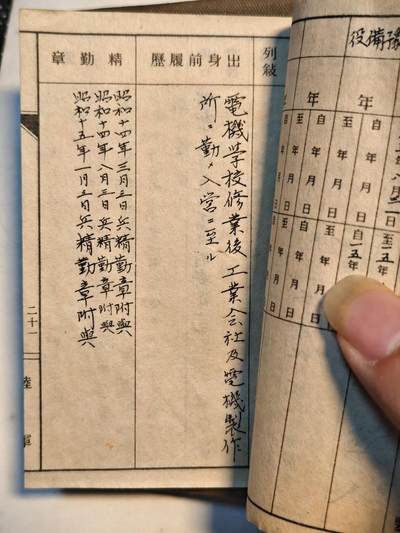 役備豫
年
自
至
自
至
年
月
日
年
月
日
年
月
日
至一五年
自一五年
月
日
列敍
出身前履歷
電機学校修業後工業会社及電機製作
所ニ勤ノ入営ニ至ル
精勤章
昭和十四年三月三日兵精勤章附與
昭和十四年八月三日兵精勤章附與
昭和十五年一月三日兵精勤章附與
二十一
陸軍